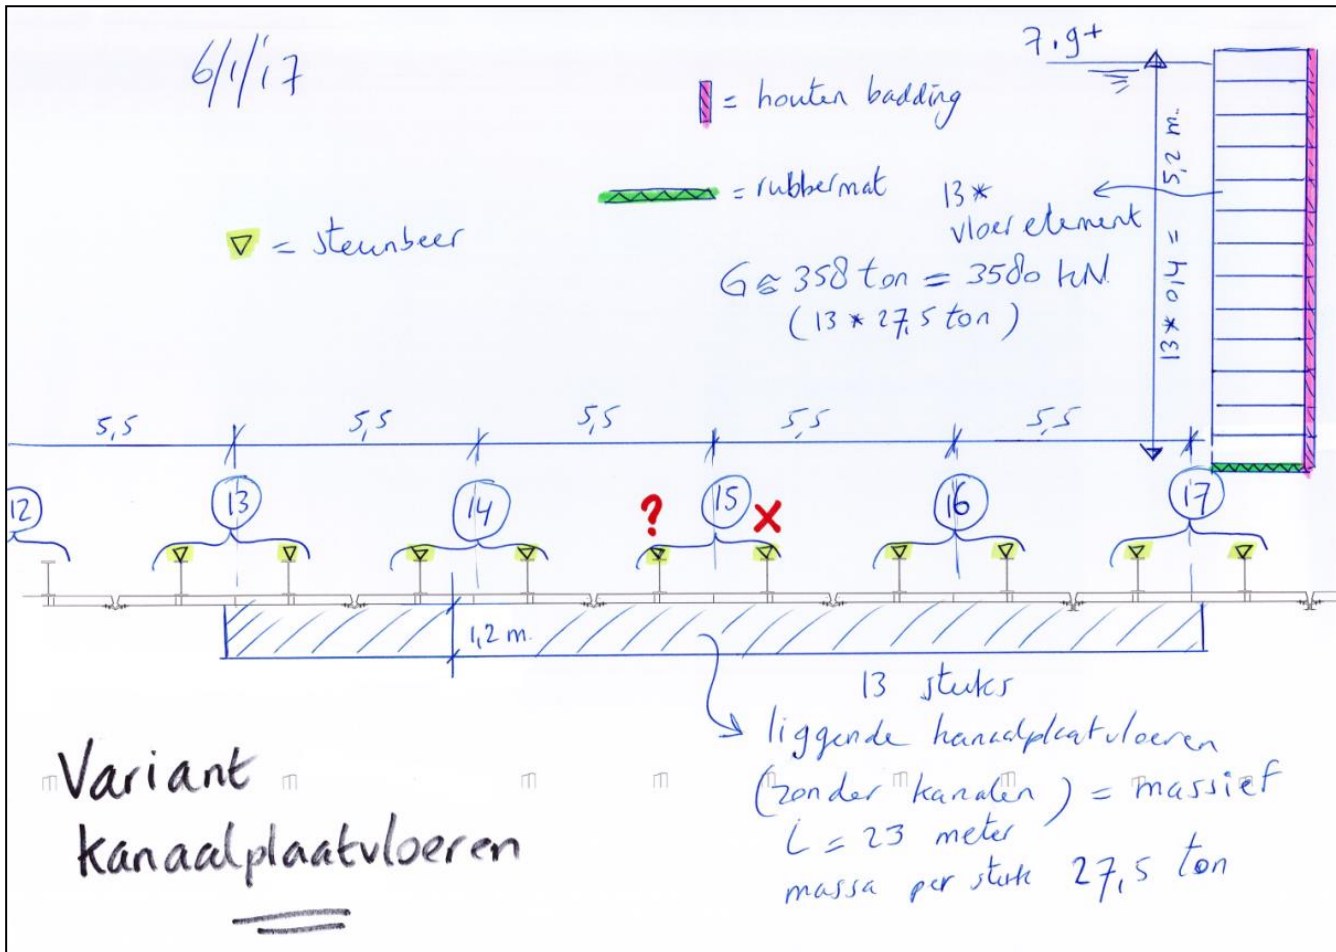 6/1/'17
7,9+
= houten badding
= rubbermat
= steunbeer
13*
vloerelement
G ≈ 358 ton = 3580 kN
(13 * 27,5 ton)
13 * 0,4 = 5,2 m.
5,5 5,5 5,5 5,5 5,5
? X
12 13 14 15 16 17
1,2 m.
13 stuks
liggende kanaalplaatvloeren
(zonder kanalen) = massief
L = 23 meter
massa per stuk 27,5 ton
Variant
kanaalplaatvloeren